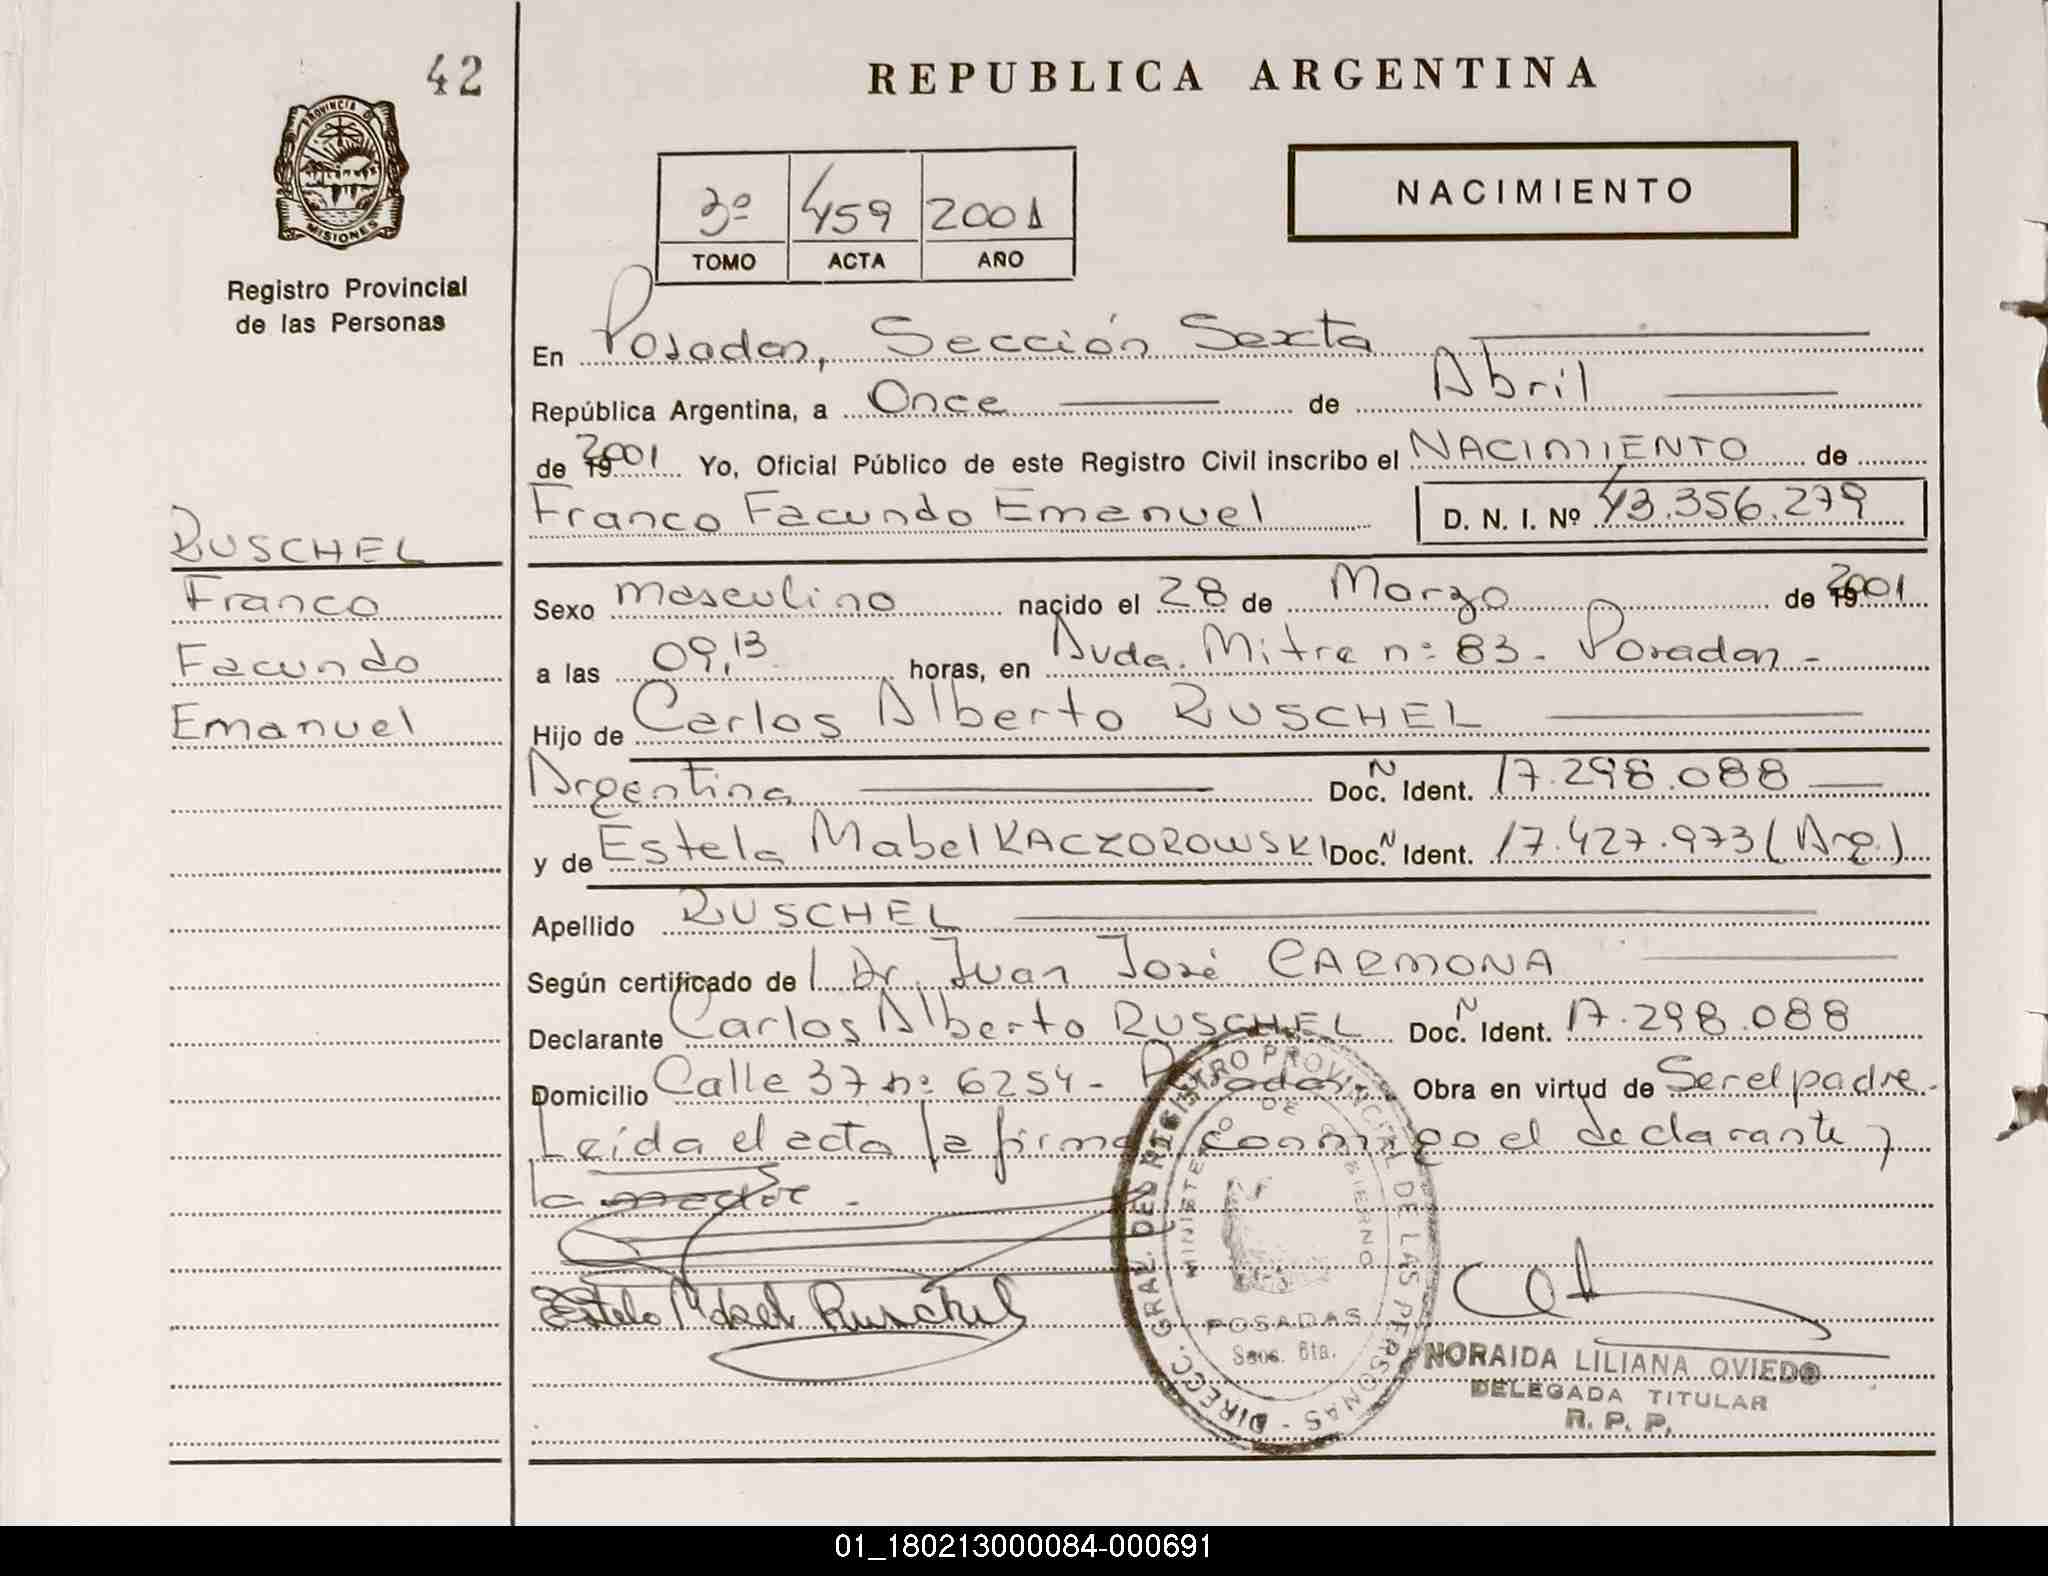 42
REPUBLICA ARGENTINA
PROVINCIA DE
MISIONES
Registro Provincial
de las Personas
3º 459 2001
TOMO ACTA AÑO
NACIMIENTO
En Posadas, Sección Sexta
República Argentina, a Once de Abril
de 2001 Yo, Oficial Público de este Registro Civil inscribo el NACIMIENTO de
Franco Facundo Emanuel D. N. I. Nº 43.356.279
RUSCHEL
Franco
Facundo
Emanuel
Sexo masculino nacido el 28 de Marzo de 2001
a las 09,13 horas, en Avda. Mitre nº 83 - Posadas -
Hijo de Carlos Alberto RUSCHEL
Argentina Doc. N Ident. 17.298.088
y de Estela Mabel KACZOROWSKI Doc. N Ident. 17.427.973 (Arg.)
Apellido RUSCHEL
Según certificado de l Dr. Juan José CARMONA
Declarante Carlos Alberto RUSCHEL Doc. N Ident. 17.298.088
Domicilio Calle 37 nº 6254 - Posadas. Obra en virtud de Ser el padre.
Leída el acta la firma conmigo el declarante y
la madre -
Estela Mabel Ruschel
DIRECC. GRAL. DEL REGISTRO PROVINCIAL DE LAS PERSONAS -
MINISTERIO DE GOBIERNO
POSADAS
Secc. 6ta.
NORAIDA LILIANA OVIEDO
DELEGADA TITULAR
R. P. P.
01_180213000084-000691